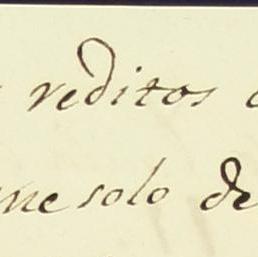 reditos
me solo de